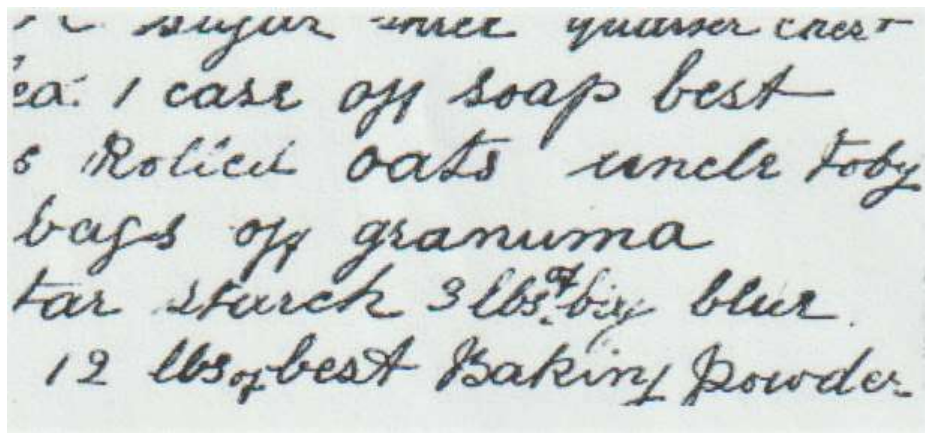 sugar three quarter chest
ea. 1 case off soap best
s Rolled oats uncle Toby
bags off granuma
tar starch 3 lbs of big blue.
12 lbs of best Baking Powder